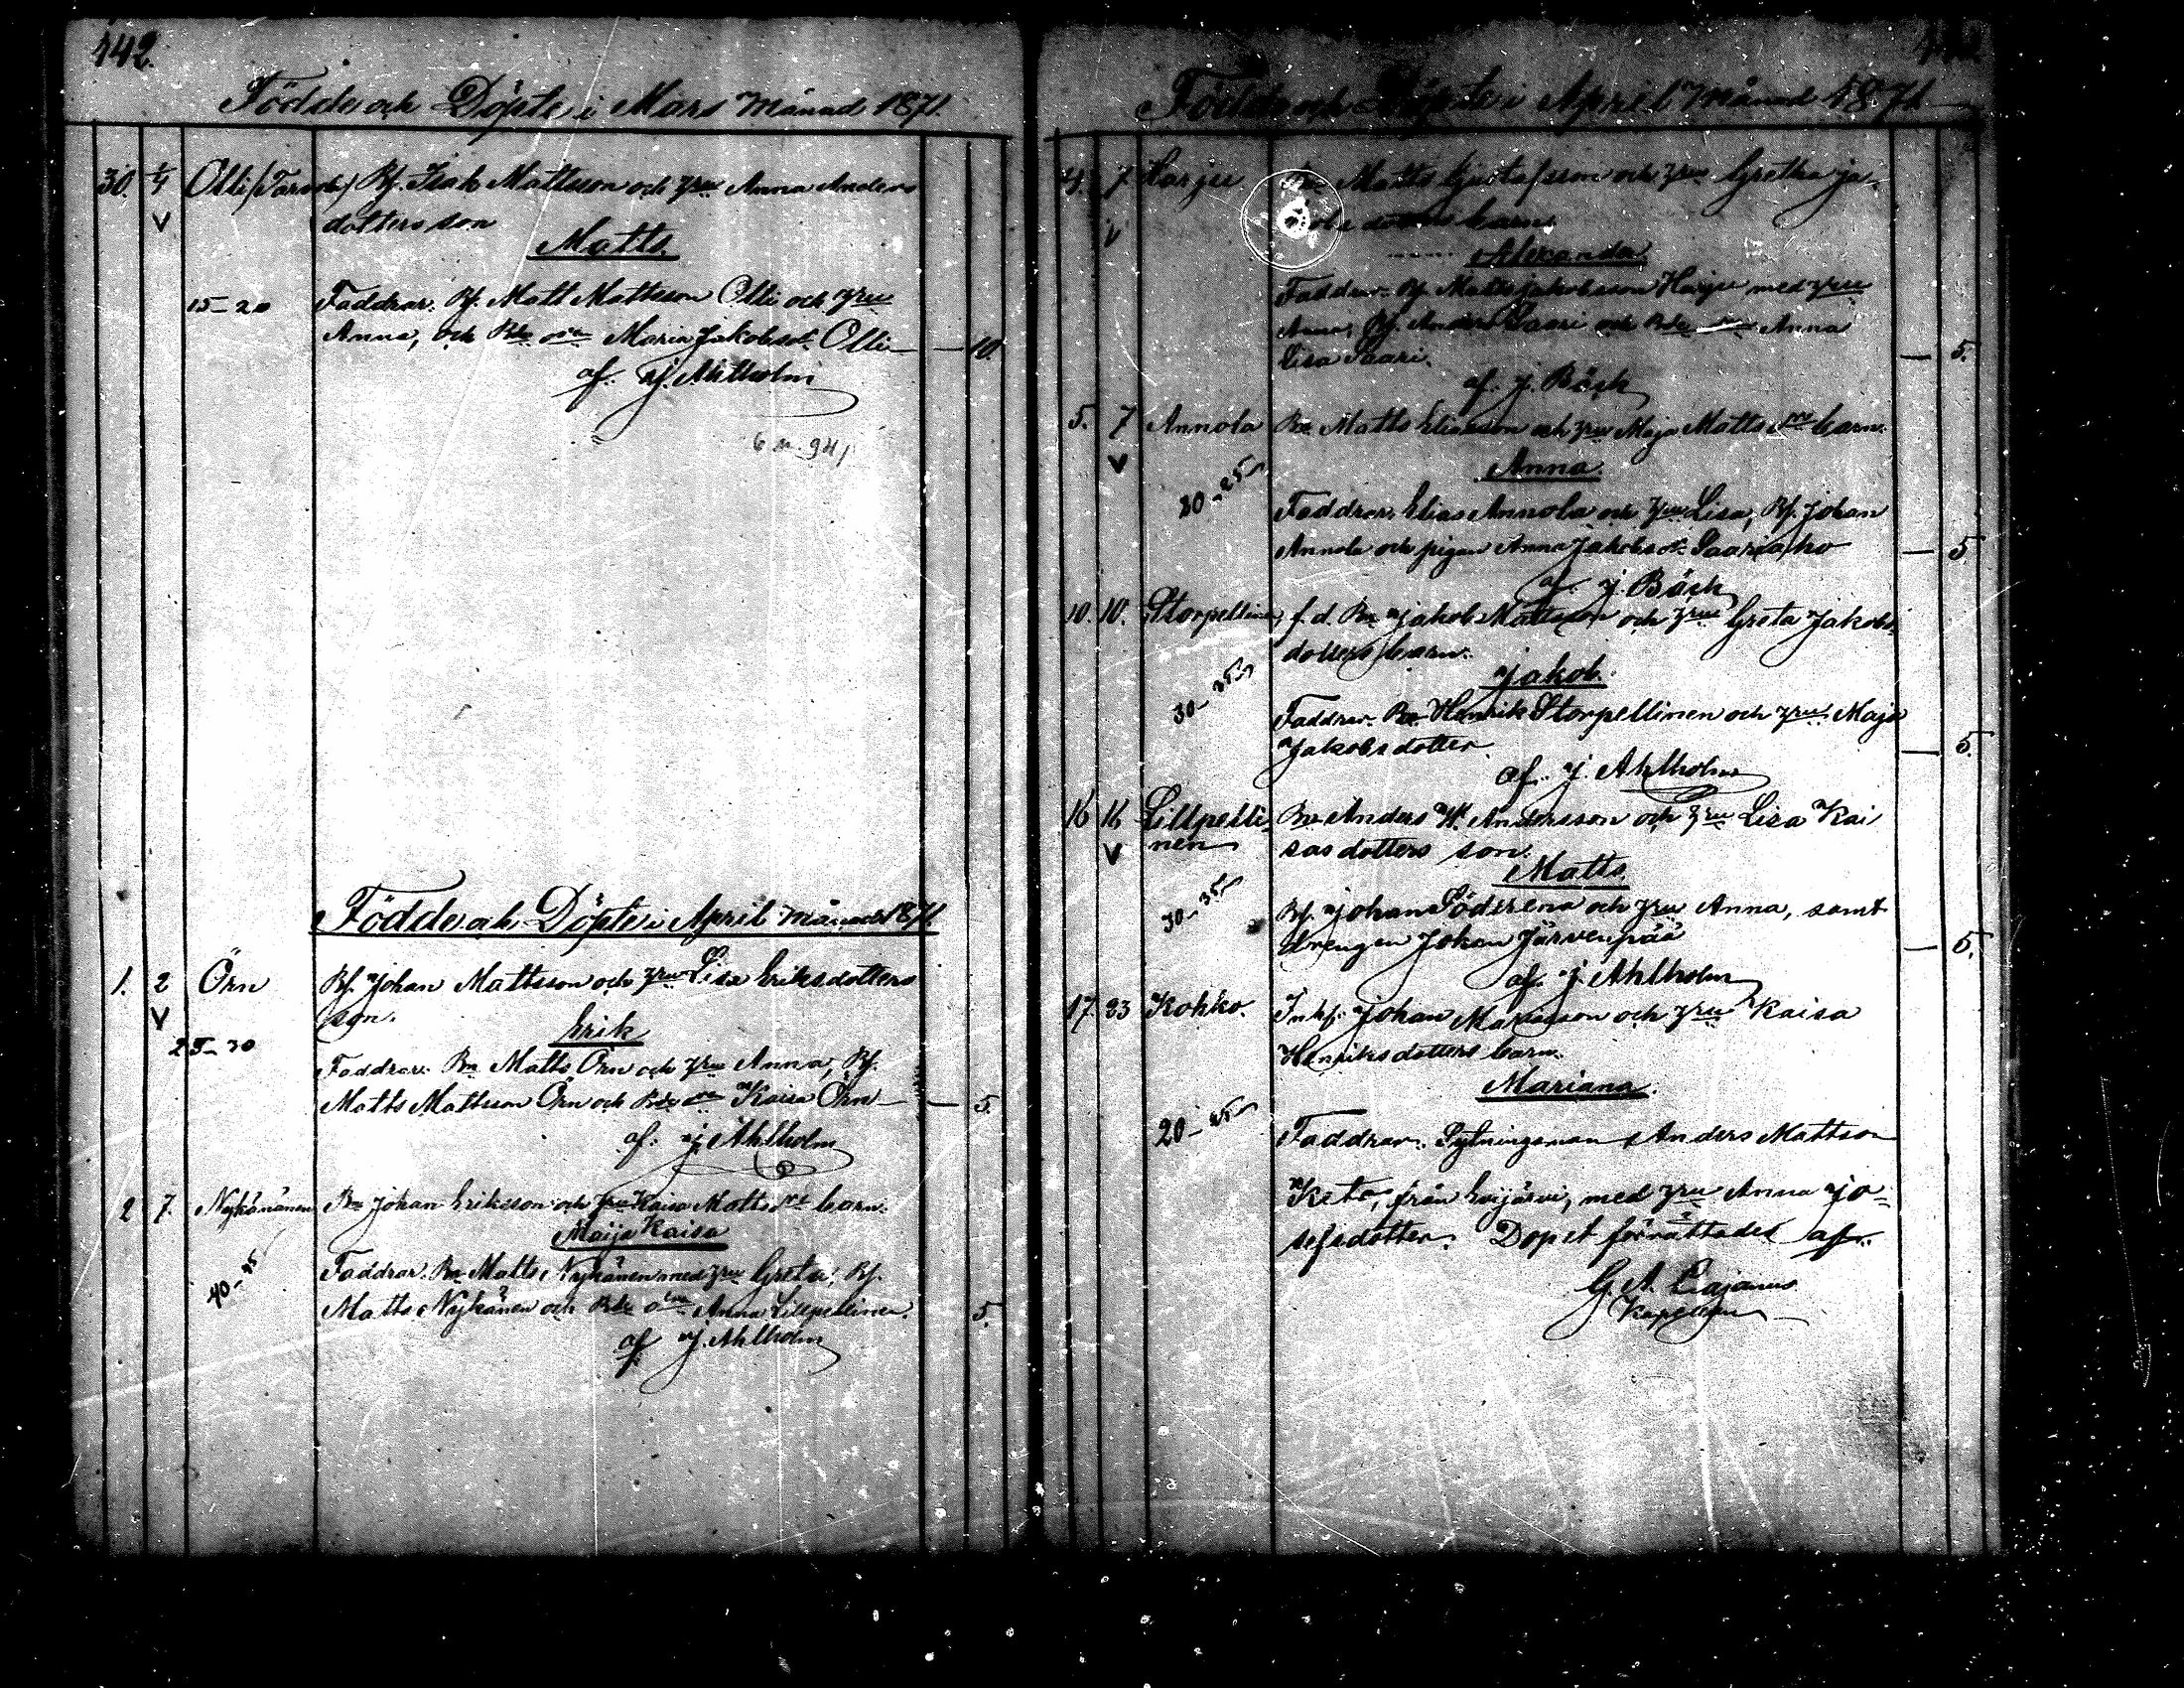 142.
Födde och Döpte i Mars månad 1871.
30. 1/4 Olli (Tarvola) Bf. Isak Mattsson och hru Anna Anders
dotters son
Matts.
15–20 Faddrar: Bf. Matt Mattsson Olli och hru
Anna, och Bde Maria Jakobsd. Olli — 10.
af. J. Ahlholm
6 n. 94
Födde och Döpte i April månad 1871
1. 2 Örn Bf. Johan Mattsson och hru Lisa Eriksdotters
son.
Erik
25–30
Faddrar: Bn Matts Örn och hru Anna, Bf.
Matts Mattsson Örn och Bde Kaisa Örn — 5.
af. J. Ahlholm
2 7. Nykänänen Bn Johan Eriksson och hru Kaisa Matts barn.
Maija Kaisa
40–45 Faddrar. Bn Matts Nykänen med hru Greta, Bf.
Matts Nykänen och Bde Anna Lillpellinen. 5.
af J. Ahlholm
Födde och Döpte i April månad 1871
4. 7. Harju Bn Matts Gustafsson och hru Gretha Ja-
barn.
Alexander.
Faddrar Bf. Matts Jakobsson Harju med hru
Anna, Bf. Anders Saari och Bde Anna
Lisa Saari. — 5.
af. J. Bäck
5. 7 Annola Bn Matts Eliasson och hru Maja Matts barn.
Anna.
20–25
Faddrar. Elias Annola och hru Lisa, Bf. Johan
Annola och pigan Anna Jakobsd. Saariaho — 5
af J. Bäck
10. 10. Storpellinen f.d. Bn Jakob Mattsson och hru Greta Jakobs-
dotters barn.
Jakob.
30–35
Faddrar Bn Henrik Storpellinen och hru Maja
Jakobsdotter. — 5.
af. J. Ahlholm
16 16 Lillpelli- Bn Anders H. Andersson och hru Lisa Kai
nen sas dotters son.
Matts.
30–35
Bf. Johan Söderena och hru Anna, samt
drengen Johan Järvenpää — 5.
af. J. Ahlholm
17. 23 Kohko. Inhs Johan Mariasson och hru Kaisa
Henriksdotters barn.
Mariana.
20–25 Faddrar. Sytningsman Anders Mattson
Keto, från Evijärvi, med hru Anna Jo-
sefsdotter. Dopet förrättades af
G. A. Cajanus
Kapellan